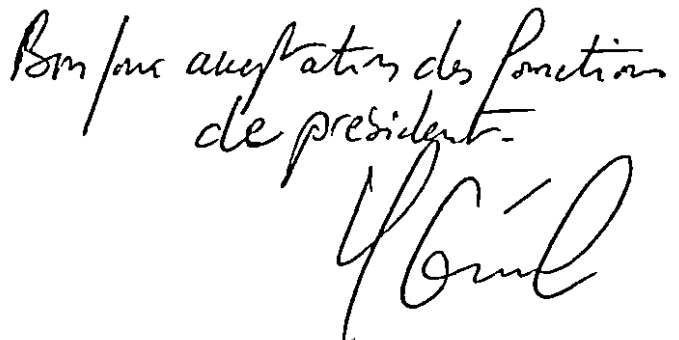 Bon pour acceptation des fonctions
de président.